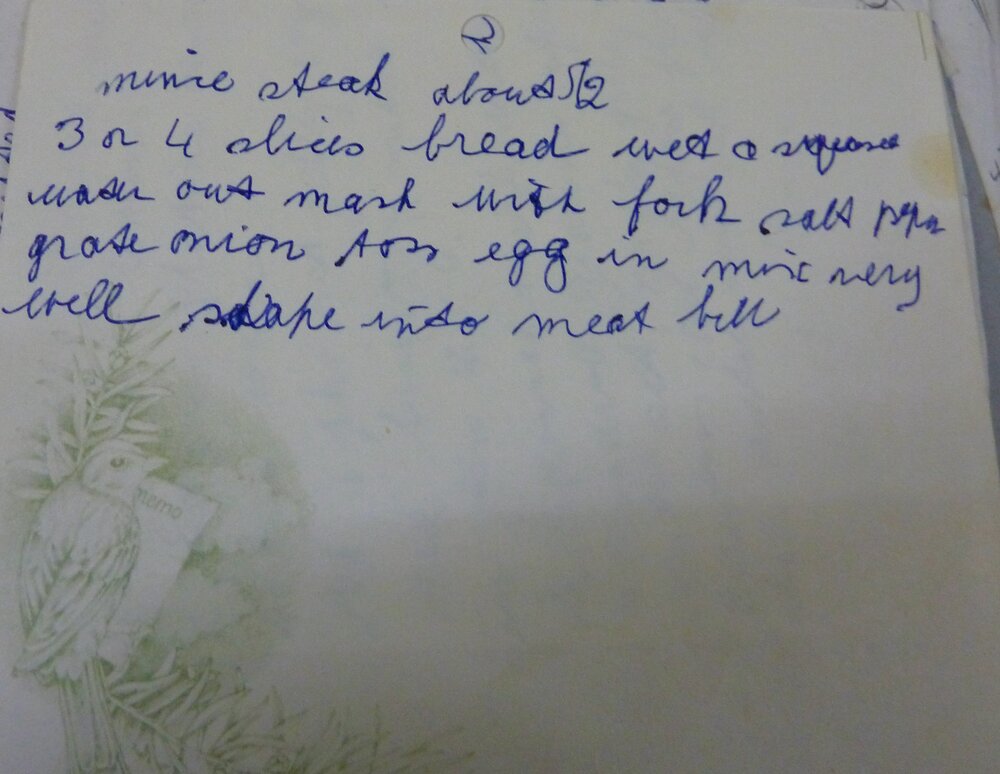 2
mince steak about
3 or 4 slices bread wet & squeese
water out mash with fork salt pepr
grate onion toss egg in mix very
well shape into meat bll
memo